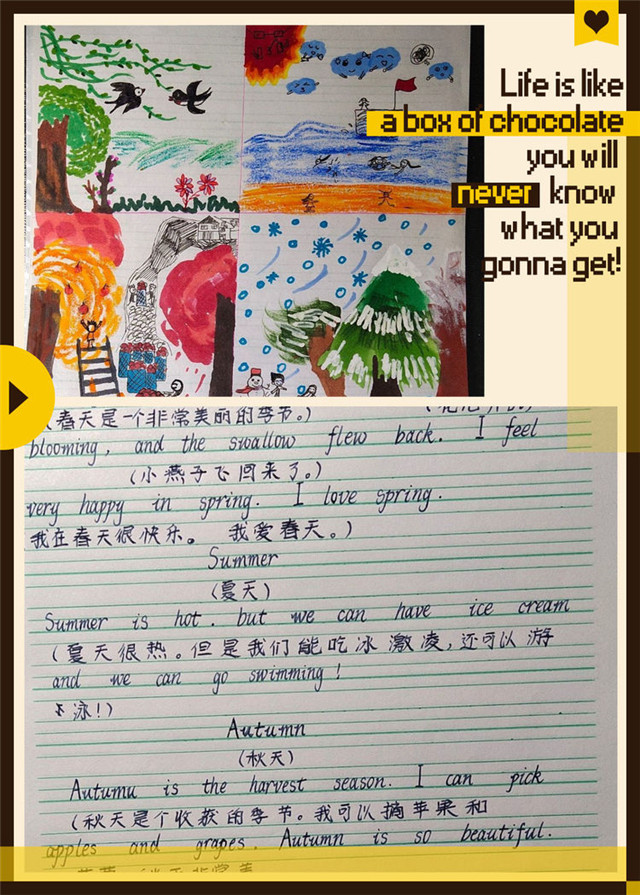 Life is like
a box of chocolate
you will
never know
what you
gonna get!
(春天是一个非常美丽的季节。)
blooming, and the swallow flew back. I feel
(小燕子飞回来了。)
very happy in spring. I love spring.
我在春天很快乐。 我爱春天。)
Summer
(夏天)
Summer is hot. but we can have ice cream
(夏天很热。但是我们能吃冰激凌,还可以游
and we can go swimming!
泳!)
Autumn
(秋天)
Autumu is the harvest season. I can pick
(秋天是个收获的季节。我可以摘苹果和
apples and grapes. Autumn is so beautiful.